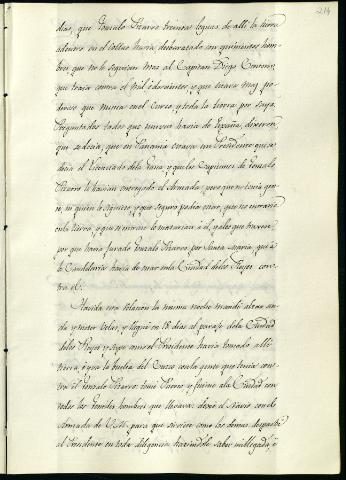 214
dias, que Gonzalo Pizarro treinta leguas de alli la tierra
adentro en el Collao havia desbaratado con quinientos hom-
bres que no le seguian mas al Capitan Diego Centeno,
que traia contra el mil e doscientos, y que estava muy po-
deroso que nunca en el Cuzco y toda la tierra por suya.
Preguntados todos que nuevas havia de España, dixeron
que se decia, que en Panamá estava un Presidente que se
decia el Licenciado dela Gasca y que los Capitanes de Gonzalo
Pizarro le havian entregado el Armada, pero que no tenia gen-
te, ni quien le siguiese, y que seguro podia estar, que no entraria
en la tierra, y que si entrase lo matarian á él, y a los que truxese
por que havia jurado Gonzalo Pizarro por Santa Maria, que á
la Candelaria havia de estar en la Ciudad delos Reyes con-
tra él.
Havida esta relacion la misma noche mandé alzar an-
cla y meter velas, y llegué en 18 dias al parage dela Ciudad
delos Reyes, y supe como el Presidente havia tomado alli
tierra, é yva la buelta del Cuzco con la gente que tenia con-
tra el Gonzalo Pizarro: tomé Puerto, y fuime ala Ciudad con
todos los Gentiles hombres que llevava: dexé el Navio con el
Armada de V. M. para que sirviese como los demas: despaché
al Presidente en toda diligencia haziendole saber mi llegada, é